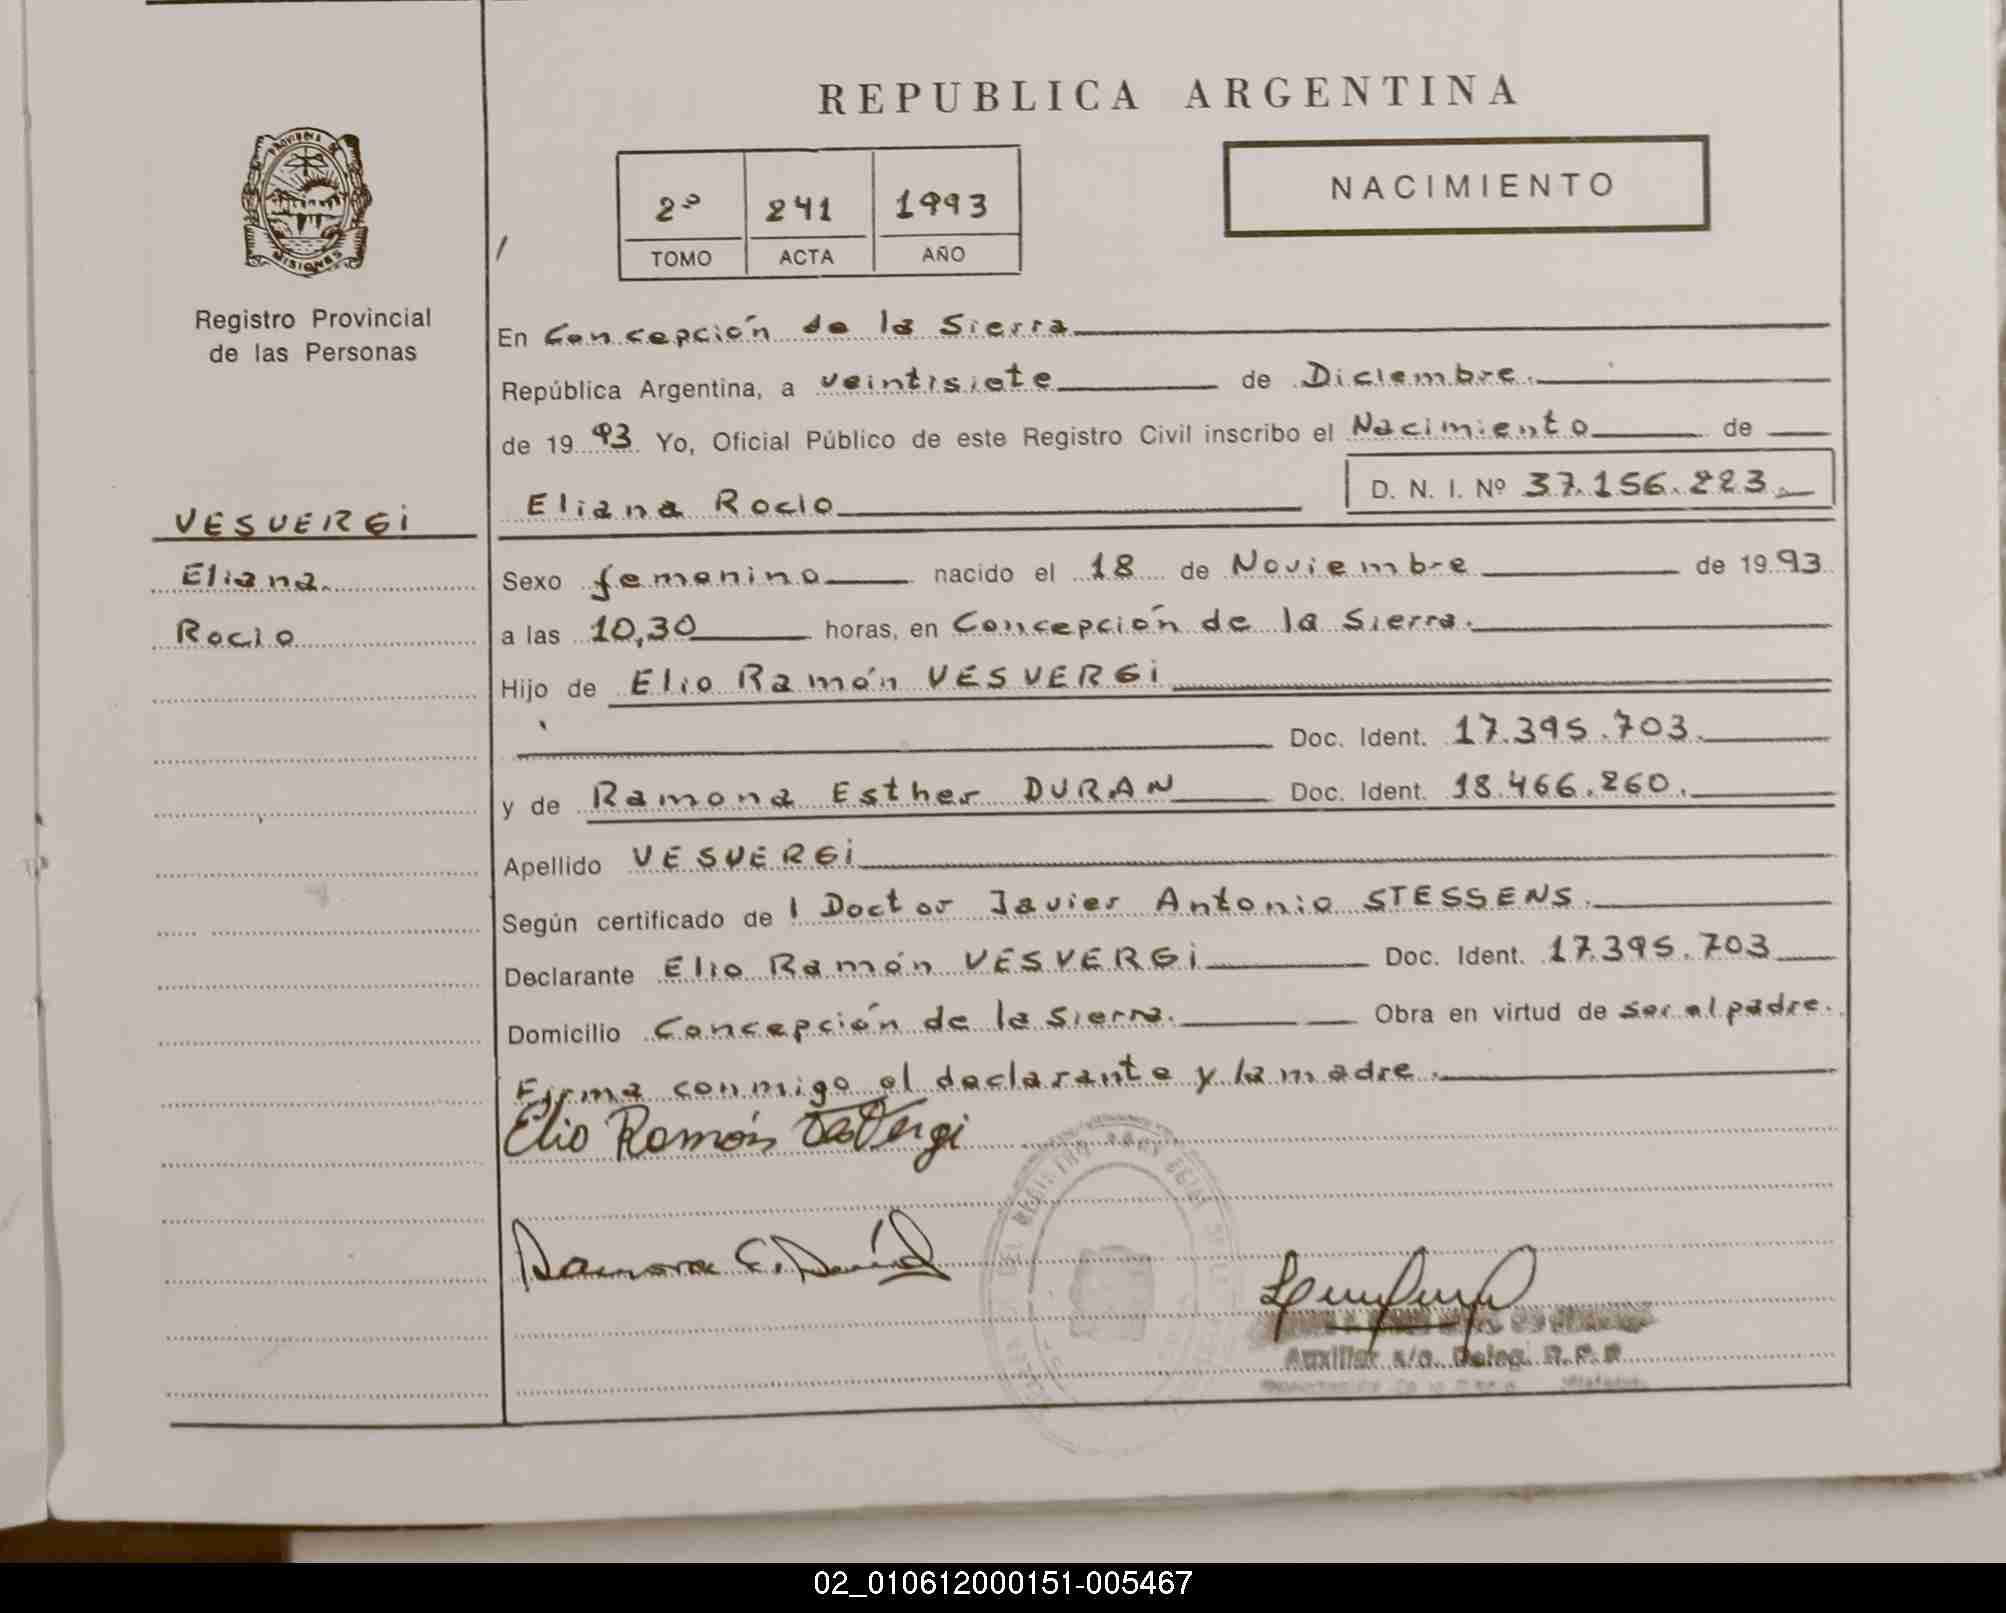 REPUBLICA ARGENTINA
PROVINCIA DE
MISIONES
Registro Provincial
de las Personas
NACIMIENTO
2º 241 1993
TOMO ACTA AÑO
En Concepción de la Sierra
República Argentina, a veintisiete de Diciembre.
de 19 93 Yo, Oficial Público de este Registro Civil inscribo el Nacimiento de
Eliana Rocio D. N. I. Nº 37.156.223.
VESVERGi
Eliana
Rocio
Sexo femenino nacido el 18 de Noviembre de 19 93
a las 10,30 horas, en Concepción de la Sierra.
Hijo de Elio Ramón VESVERGi
Doc. Ident. 17.395.703.
y de Ramona Esther DURAN Doc. Ident. 18.466.260.
Apellido VESVERGi
Según certificado de l Doctor Javier Antonio STESSENS.
Declarante Elio Ramón VESVERGi Doc. Ident. 17.395.703
Domicilio Concepción de la Sierra. Obra en virtud de ser el padre.
Firma conmigo el declarante y la madre.
Elio Ramón Vesvergi
Ramona E. Durán
Auxiliar a/c. Deleg. R.P.P.
02_010612000151-005467